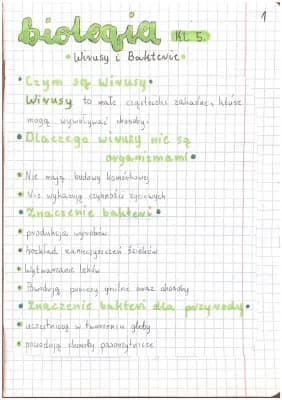 1
biologia Kl. 5.
• Wirusy i Bakterie •
• Czym są wirusy •
Wirusy to małe cząsteczki zakaźne, które
mogą wywoływać choroby.
• Dlaczego wirusy nie są
organizmami •
• Nie mają budowy komórkowej
• Nie wykazują czynności życiowych
• Znaczenie bakterii •
• produkcja wyrobów
• rozkład zanieczyszczeń ścieków
• Wytwarzanie leków
• Powodują procesy gnilne oraz choroby
• Znaczenie bakteri dla przyrody •
• uczestniczą w tworzeniu gleby
• powodują choroby pasożytnicze